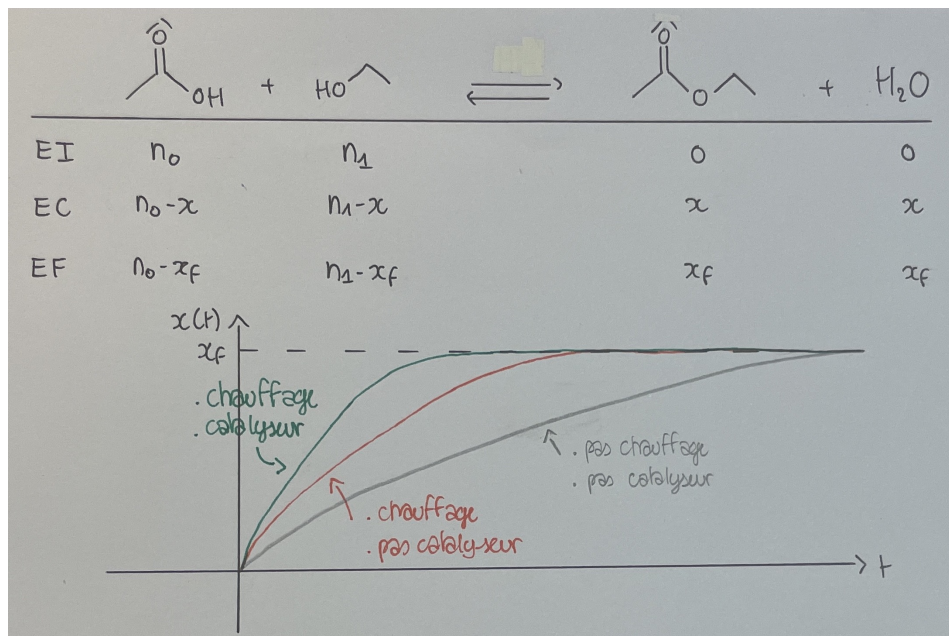 O O
OH + HO ⇌ O + H₂O
EI n₀ n₁ 0 0
EC n₀-x n₁-x x x
EF n₀-xf n₁-xf xf xf
x(t)
xf
. chauffage
. catalyseur
. pas chauffage
. pas catalyseur
. chauffage
. pas catalyseur
t